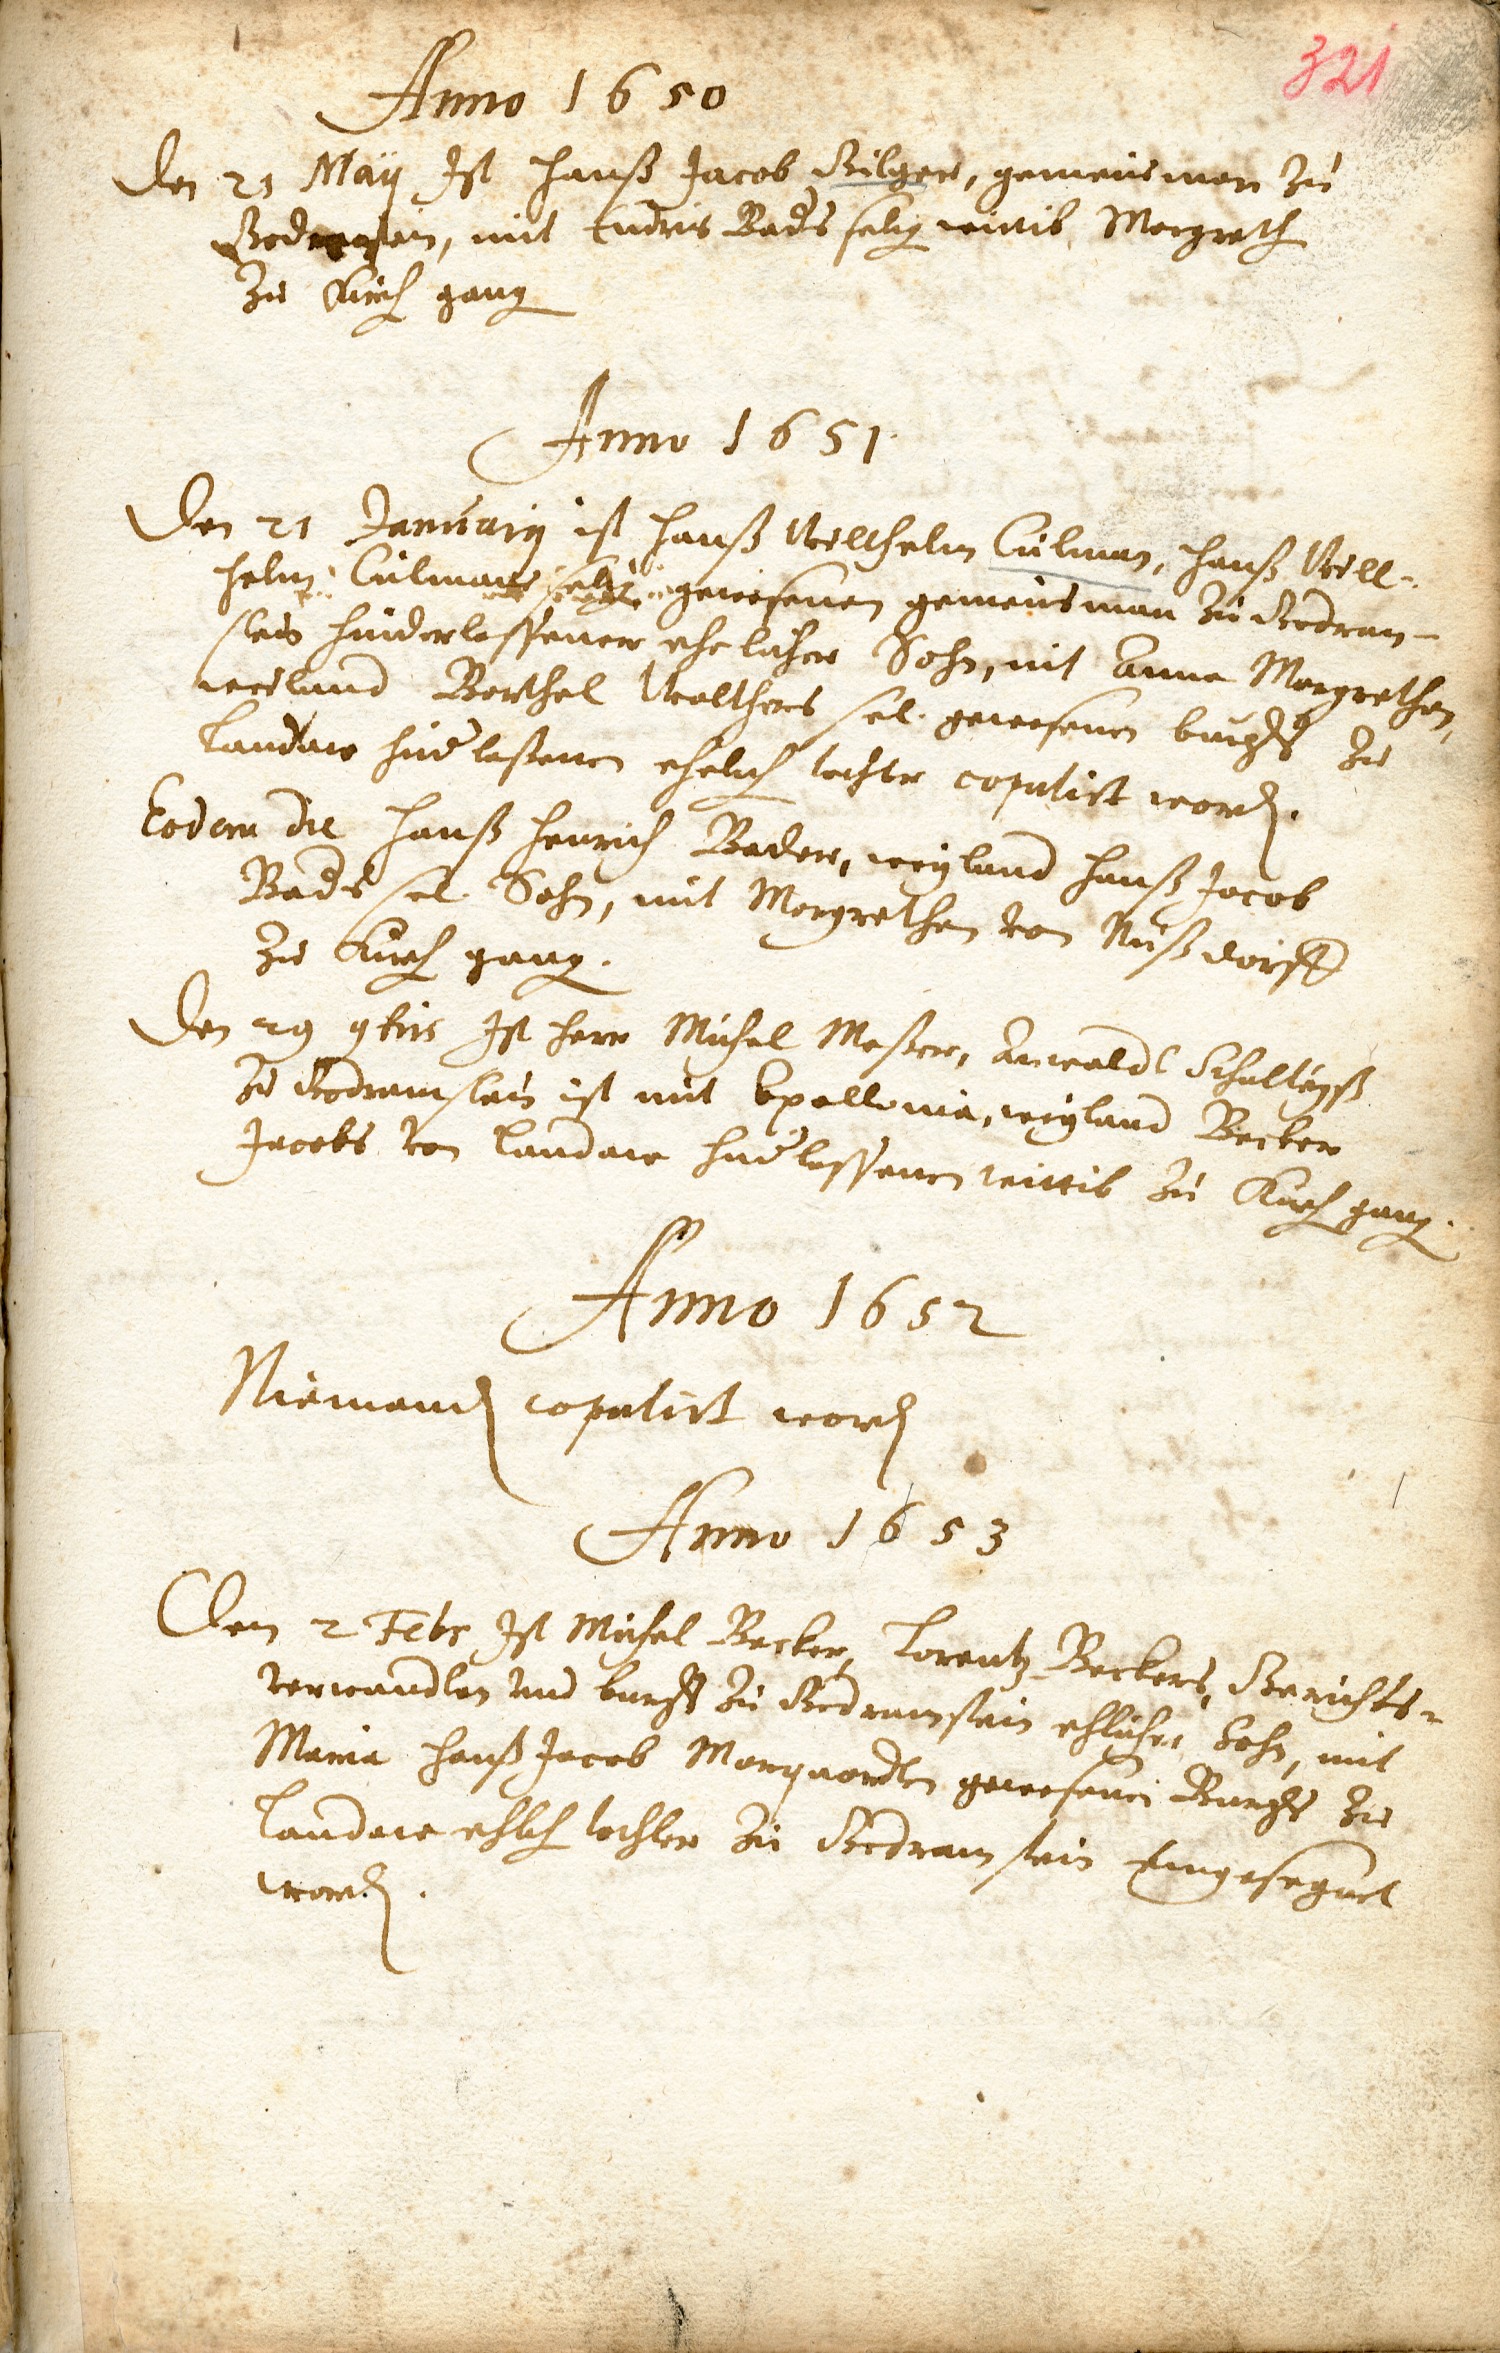 321
Anno 1650
Den 21 Maÿ Ist Hanß Jacob Bilger, gemeinsman zu
Godramstein, mit Endris Bads selig wittib Margreth
zu Kirch gang
Anno 1651
Den 21 Januarÿ ist Hanß Willhelm Culman, Hanß Will-
helm Culmans selig gewesenen gemeinsman zu Godram-
stein hinderlassener ehelicher Sohn, mit Anna Margrethen,
weiland Barthel Walthers sel. gewesenen burgers zu
Landaw hinderlaßenen ehelich tochter copulirt word.
Eodem die Hanß Henrich Bader, weyland Hanß Jacob
Bads sel. Sohn, mit Margrethen von Nußdorff
zu Kirch gang.
Den 29 9bris Ist Herr Michel Meßer, Anwaldt Schulteyß
zu Godramstein ist mit Apollonia, weyland Becker
Jacobs von Landaw hinderlassenen wittib zu Kirch gang.
Anno 1652
Niemand copulirt word
Anno 1653
Den 2 Febr Ist Michel Becker, Lorentz Beckers, Gerichts-
verwandten und burgers zu Godramstein ehlicher Sohn, mit
Maria Hanß Jacob Marquardten gewesenen Burgers zu
Landaw ehlich tochter zu Godramstein Eingesegnet
word.